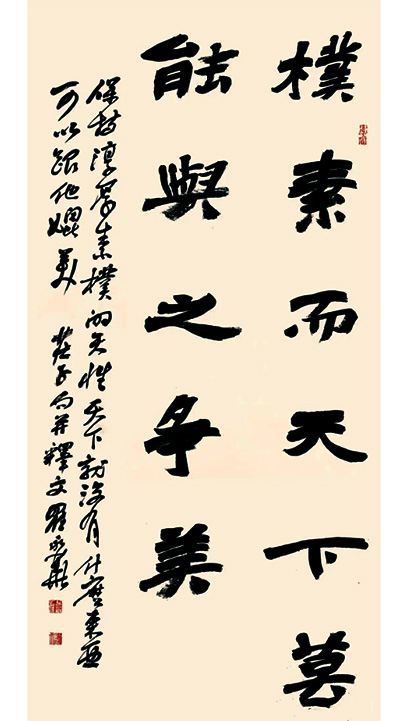 樸素而天下莫
能與之争美
保持淳厚素樸的天性天下就没有什麽東西
可以跟他媲美 莊子句并釋文